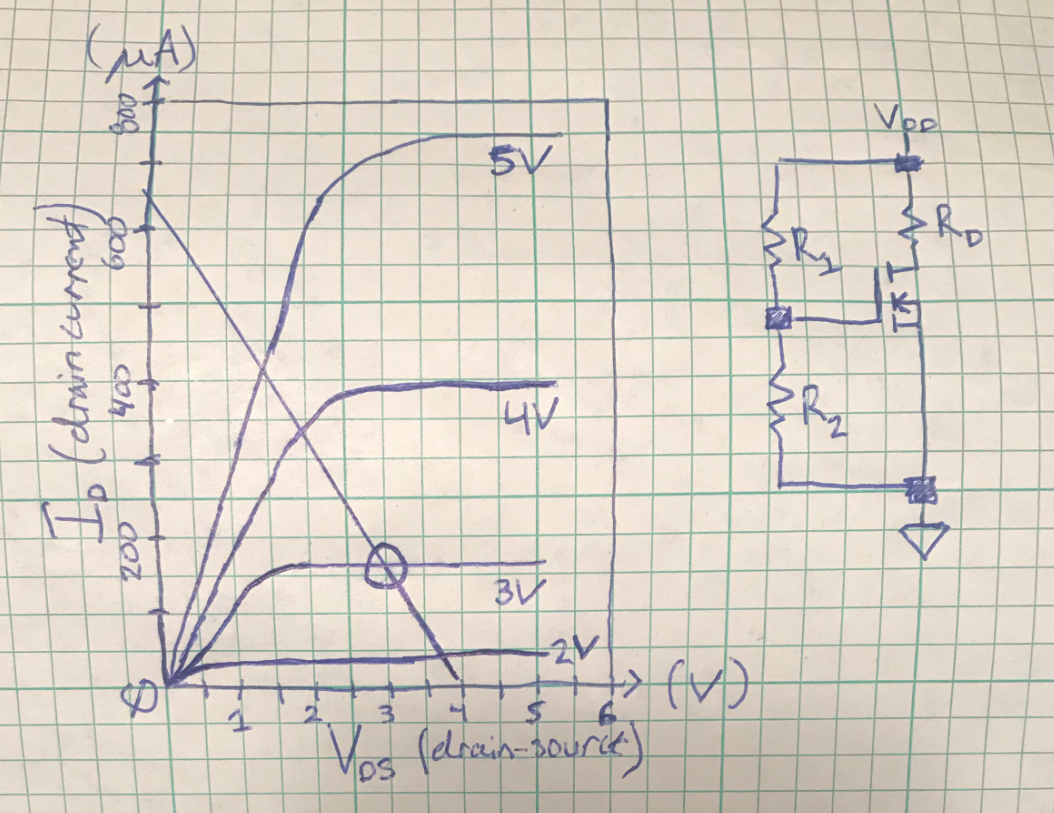 (μA)
800
600
400
200
I_D (drain current)
5V
4V
3V
2V
Ø
1
2
3
4
5
6
(V)
V_DS (drain-source)
V_DD
R_D
R_1
R_2